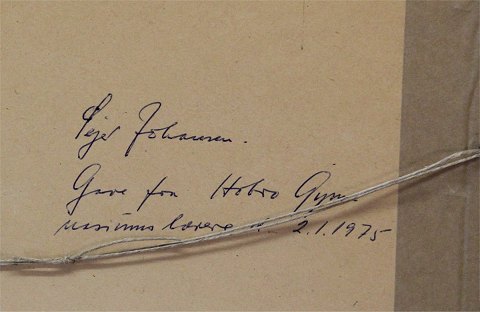 Sejer Johansen.
Gave fra Hobro Gym-
nasiums lærere 2.1.1975